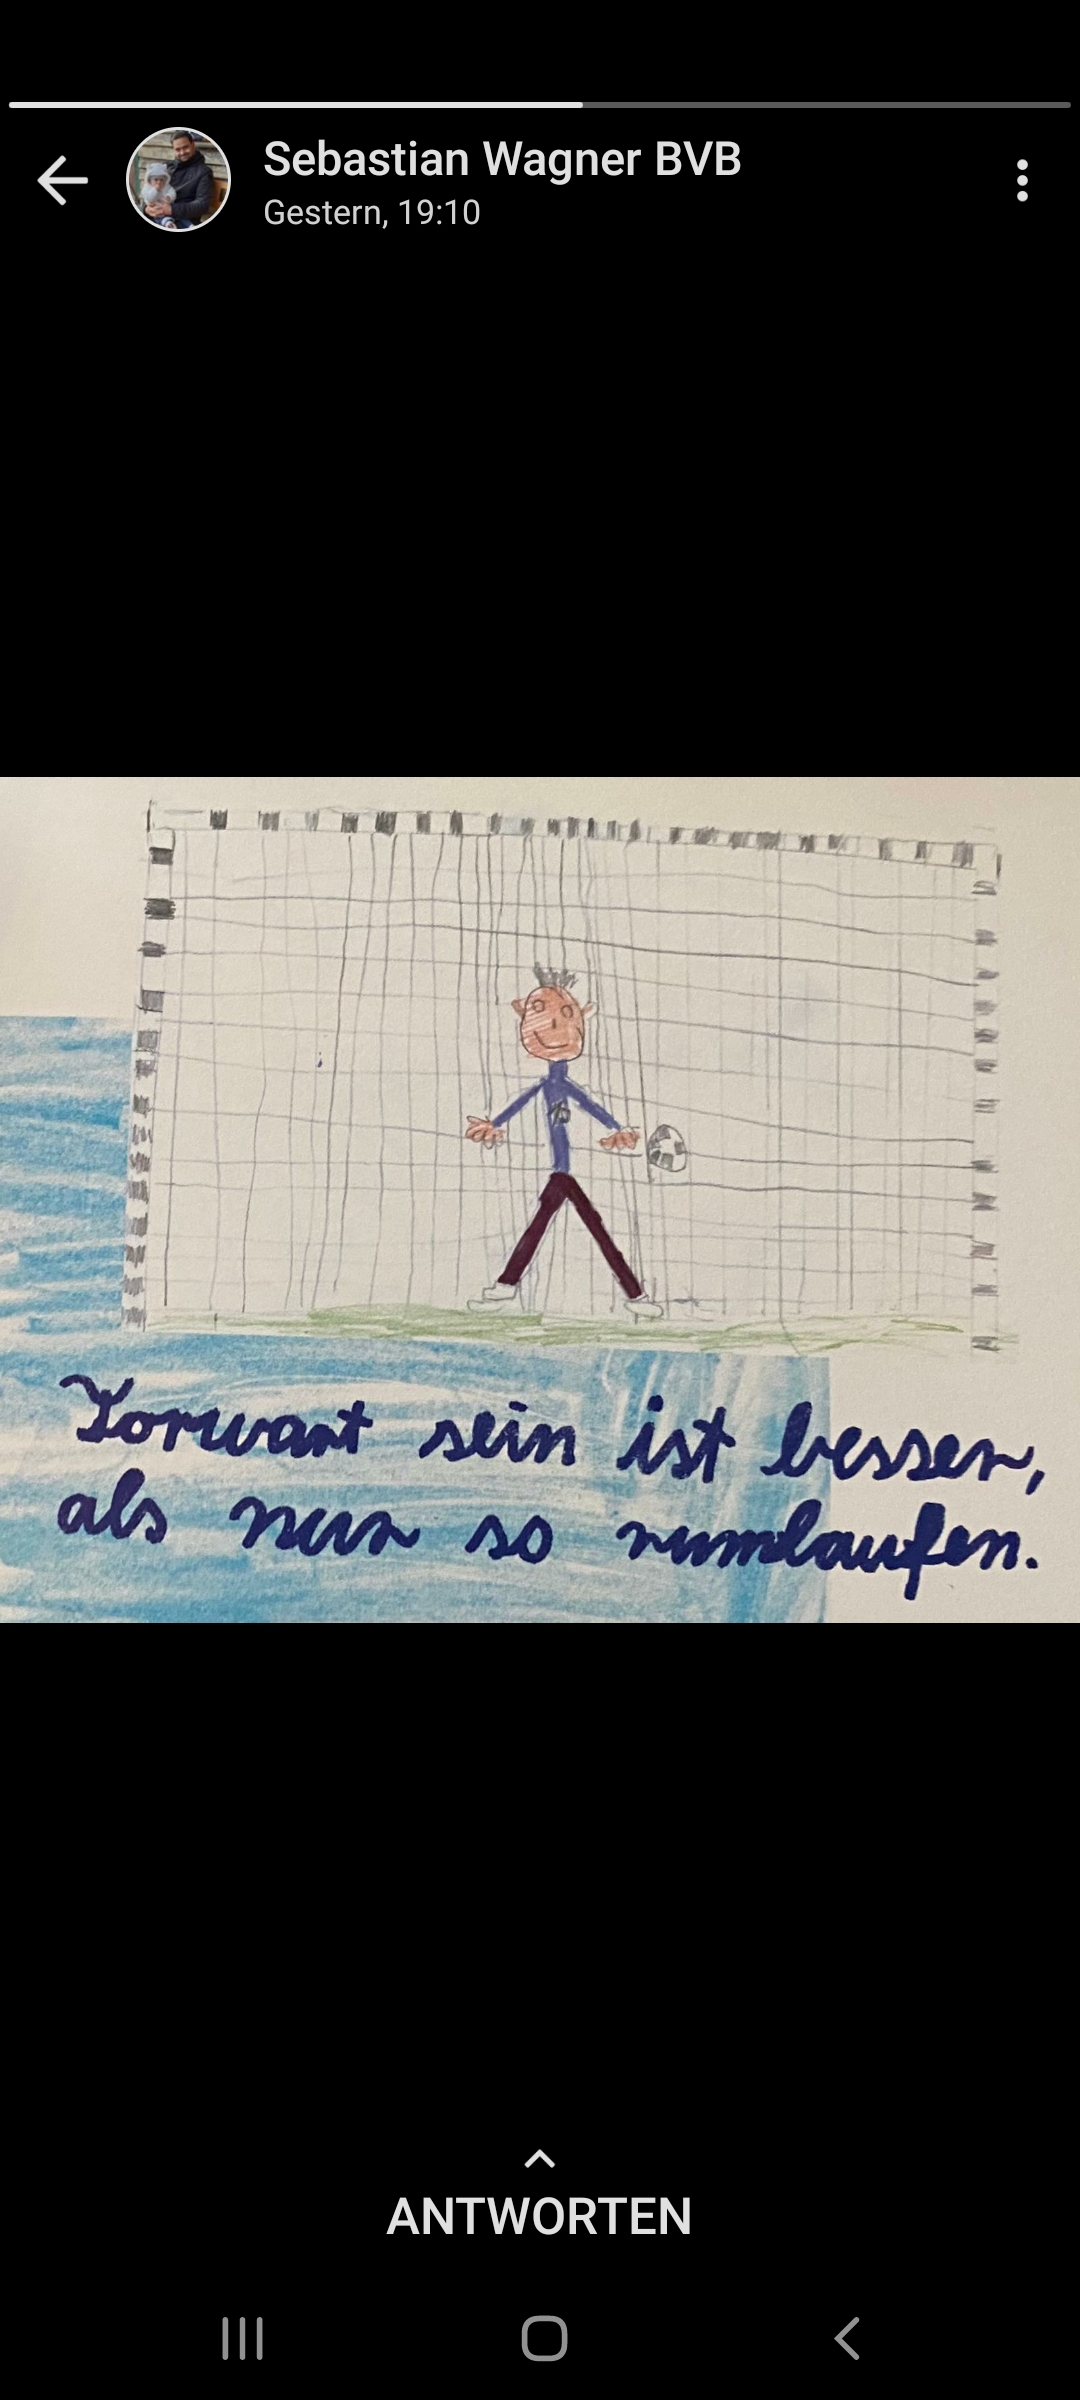 Sebastian Wagner BVB
Gestern, 19:10
Torwart sein ist besser,
als nur so rumlaufen.
ANTWORTEN